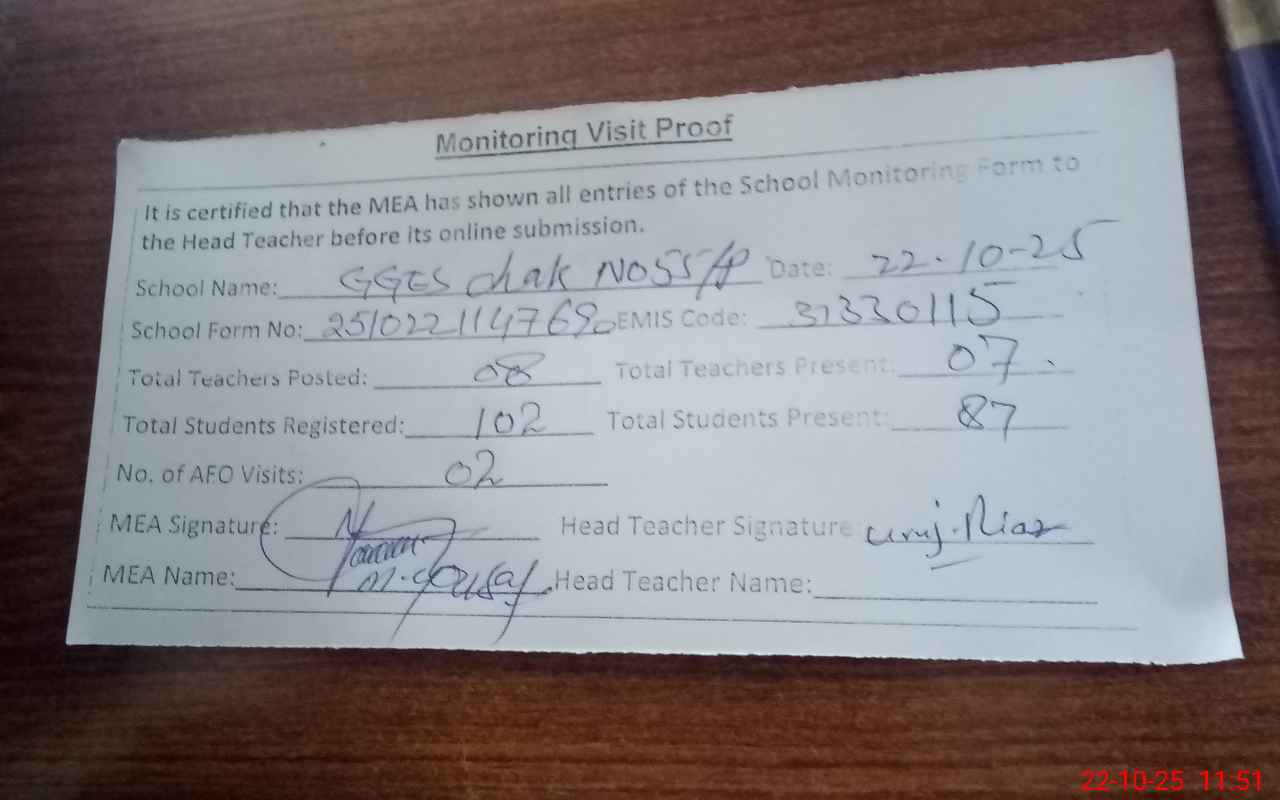 Monitoring Visit Proof
It is certified that the MEA has shown all entries of the School Monitoring Form to
the Head Teacher before its online submission.
School Name: GGES chak NO 55/P Date: 22-10-25
School Form No: 251022114769 EMIS Code: 31330115
Total Teachers Posted: 08 Total Teachers Present: 07.
Total Students Registered: 102 Total Students Present: 87
No. of AEO Visits: 02
MEA Signature: Head Teacher Signature: Riaz
MEA Name: M. Yousaf Head Teacher Name:
22-10-25 11:51